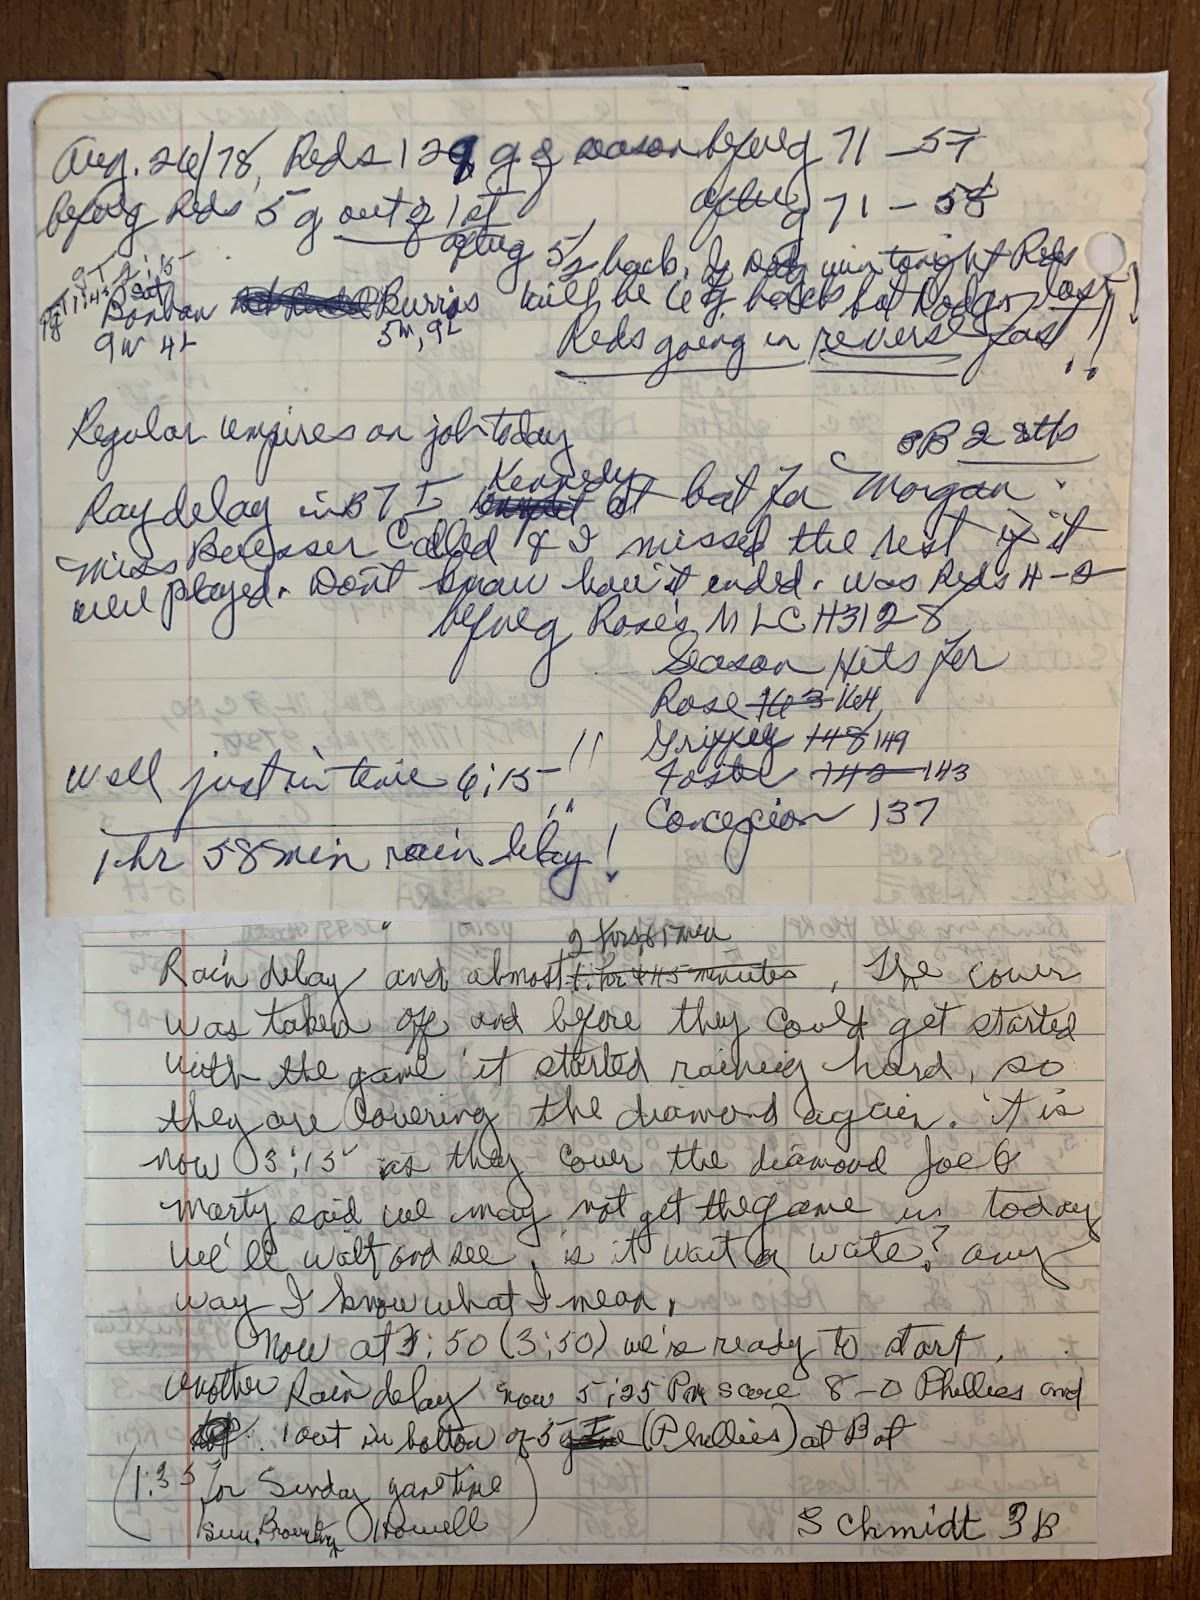 Aug. 26/78, Reds 129 g. of season before g 71 – 57
before g Reds 5 g out of 1st after g 71 – 58
after g 5½ back. If Dodg win tonight Reds
Bonham Burris will be 6 g. back but Dodgers lost
9W 4L 5W, 9L
Reds going in reverse fast!!
Regular umpires on job today
3B 2 8ths
delay in B 7 I Kennedy at bat for Morgan.
Miss called & I missed the rest if it
were played. Don't know how it ended. was Reds 4–2
before g Rose's MLC H 3128
Season Hits for
Rose 163 164,
Griffey 148 149
Foster 142 143
Concepcion 137
Well just in time 6:15!!
1 hr 58 min rain delay!
2 hrs, & 1 min
Rain delay and almost 1 hr & 45 minutes, the cover
was taken off and before they could get started
with the game it started raining hard, so
they are covering the diamond again. it is
now 3:15 as they cover the diamond Joe &
Marty said we may not get the game in today
we'll wait and see, is it wait or wate? any
way I know what I mean,
Now at 3:50 (3:50) we're ready to start.
another Rain delay now 5:25 PM score 8–0 Phillies and
1 out in bottom of 5 (Phillies) at Bat
(1:35 for Sunday game time)
Howell
Schmidt 3B